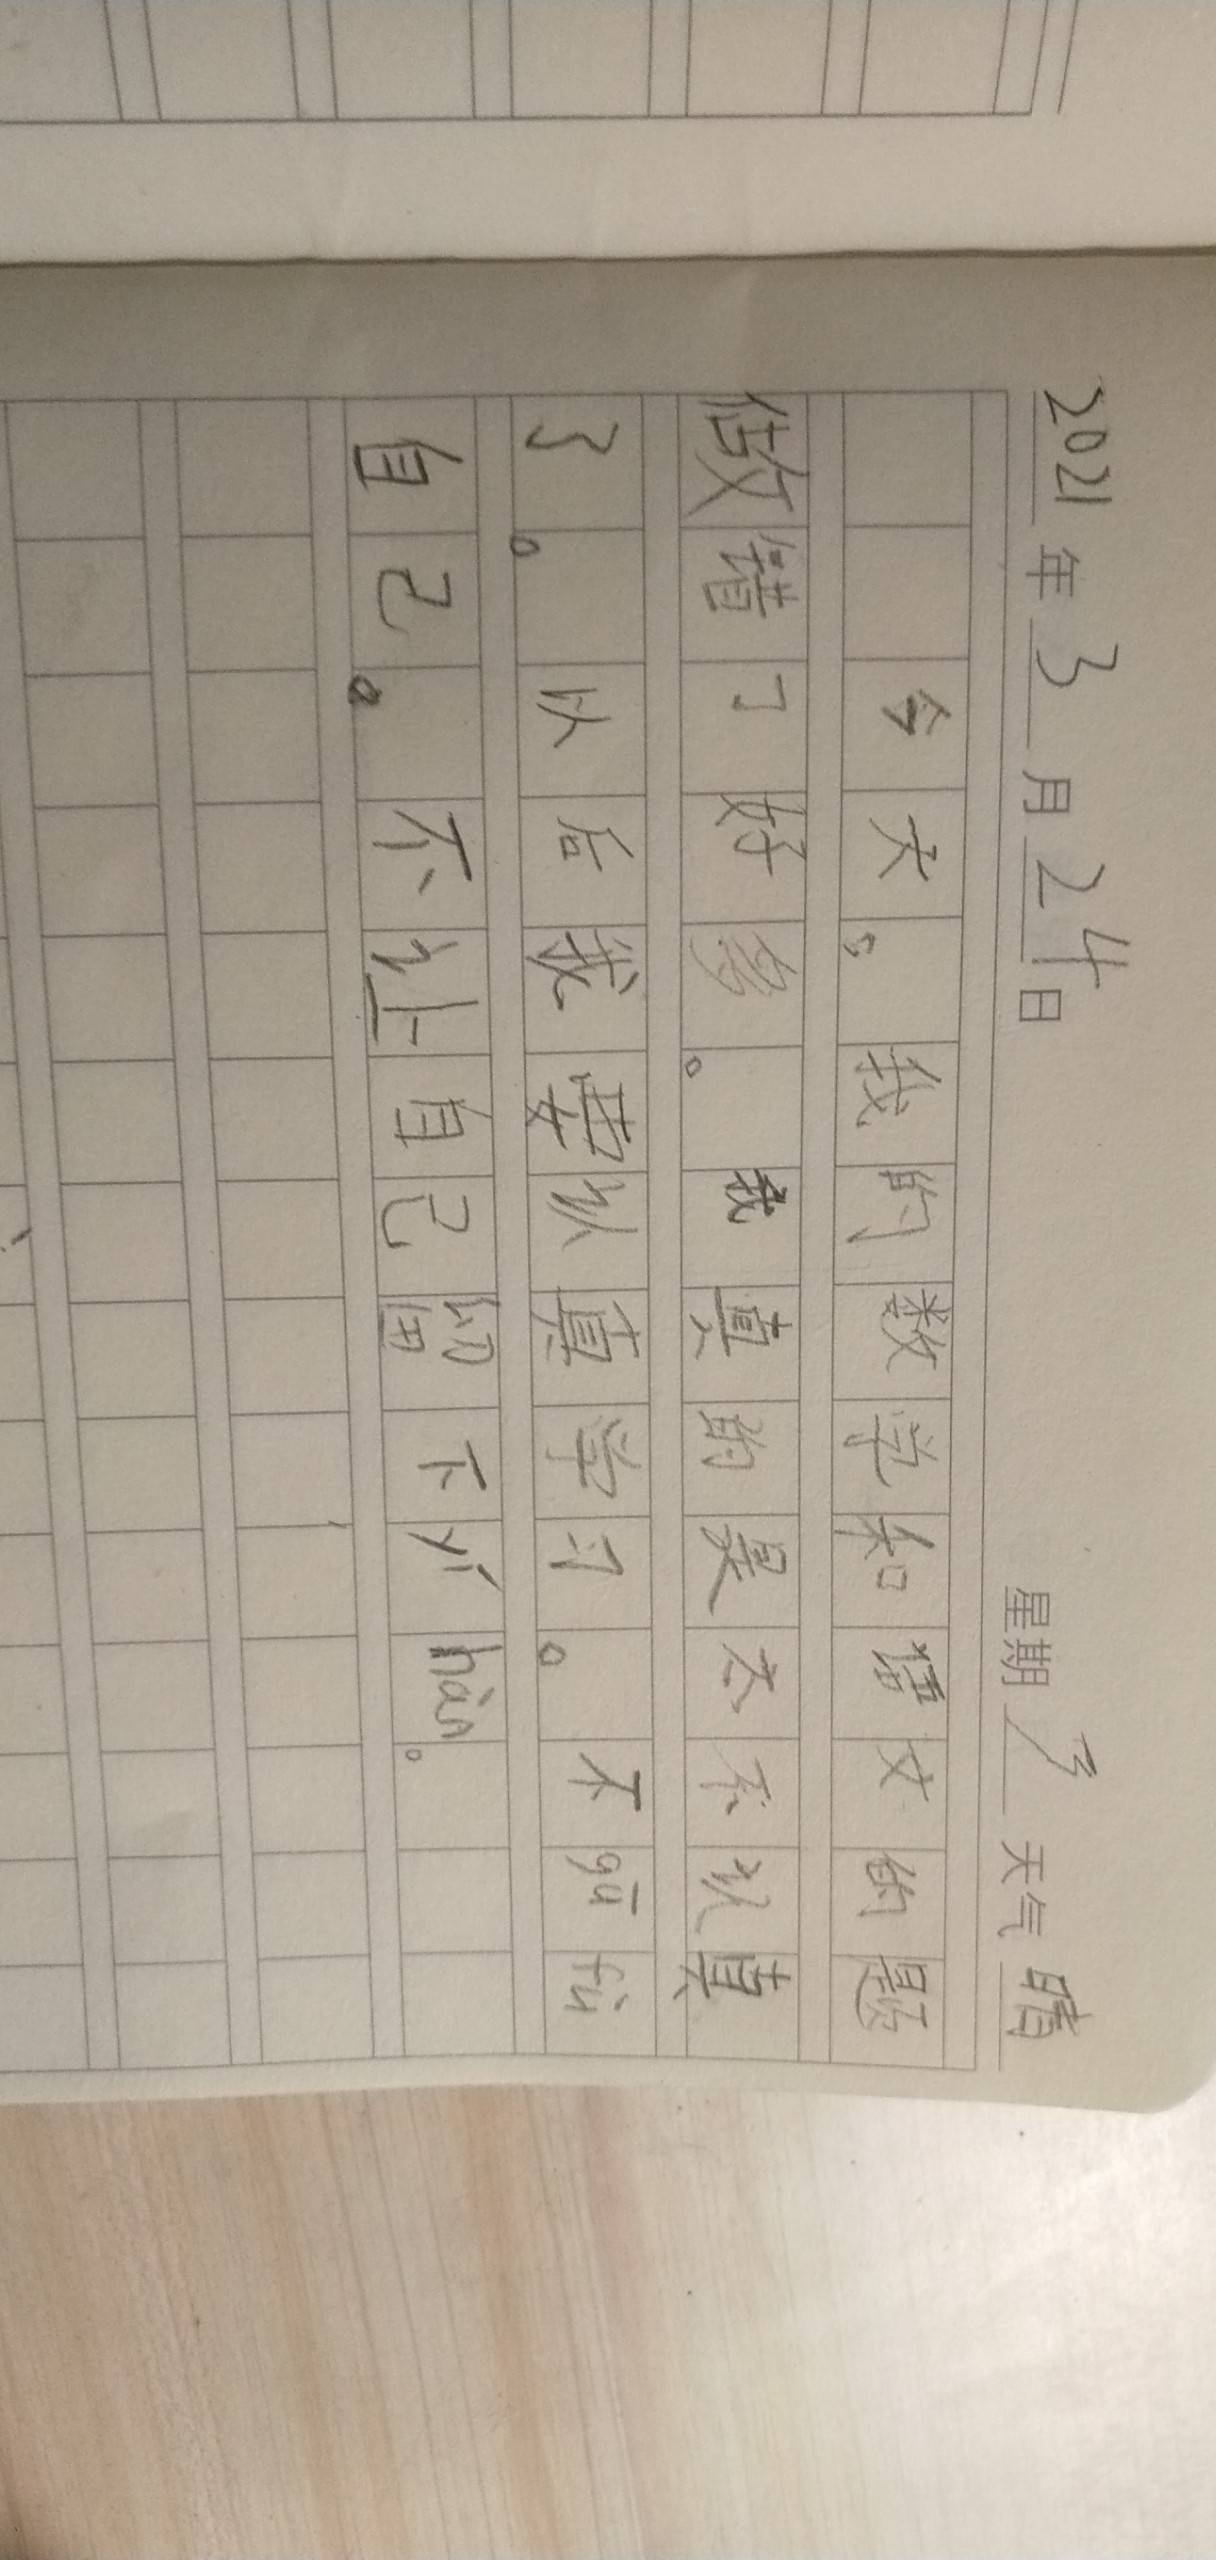 2021年3月24日 星期3 天气晴
今天。我的数学和语文的题
做错了好多。我真的是太不认真
了。以后我要认真学习。不gū fù
自己。不让自己留下yí hàn。